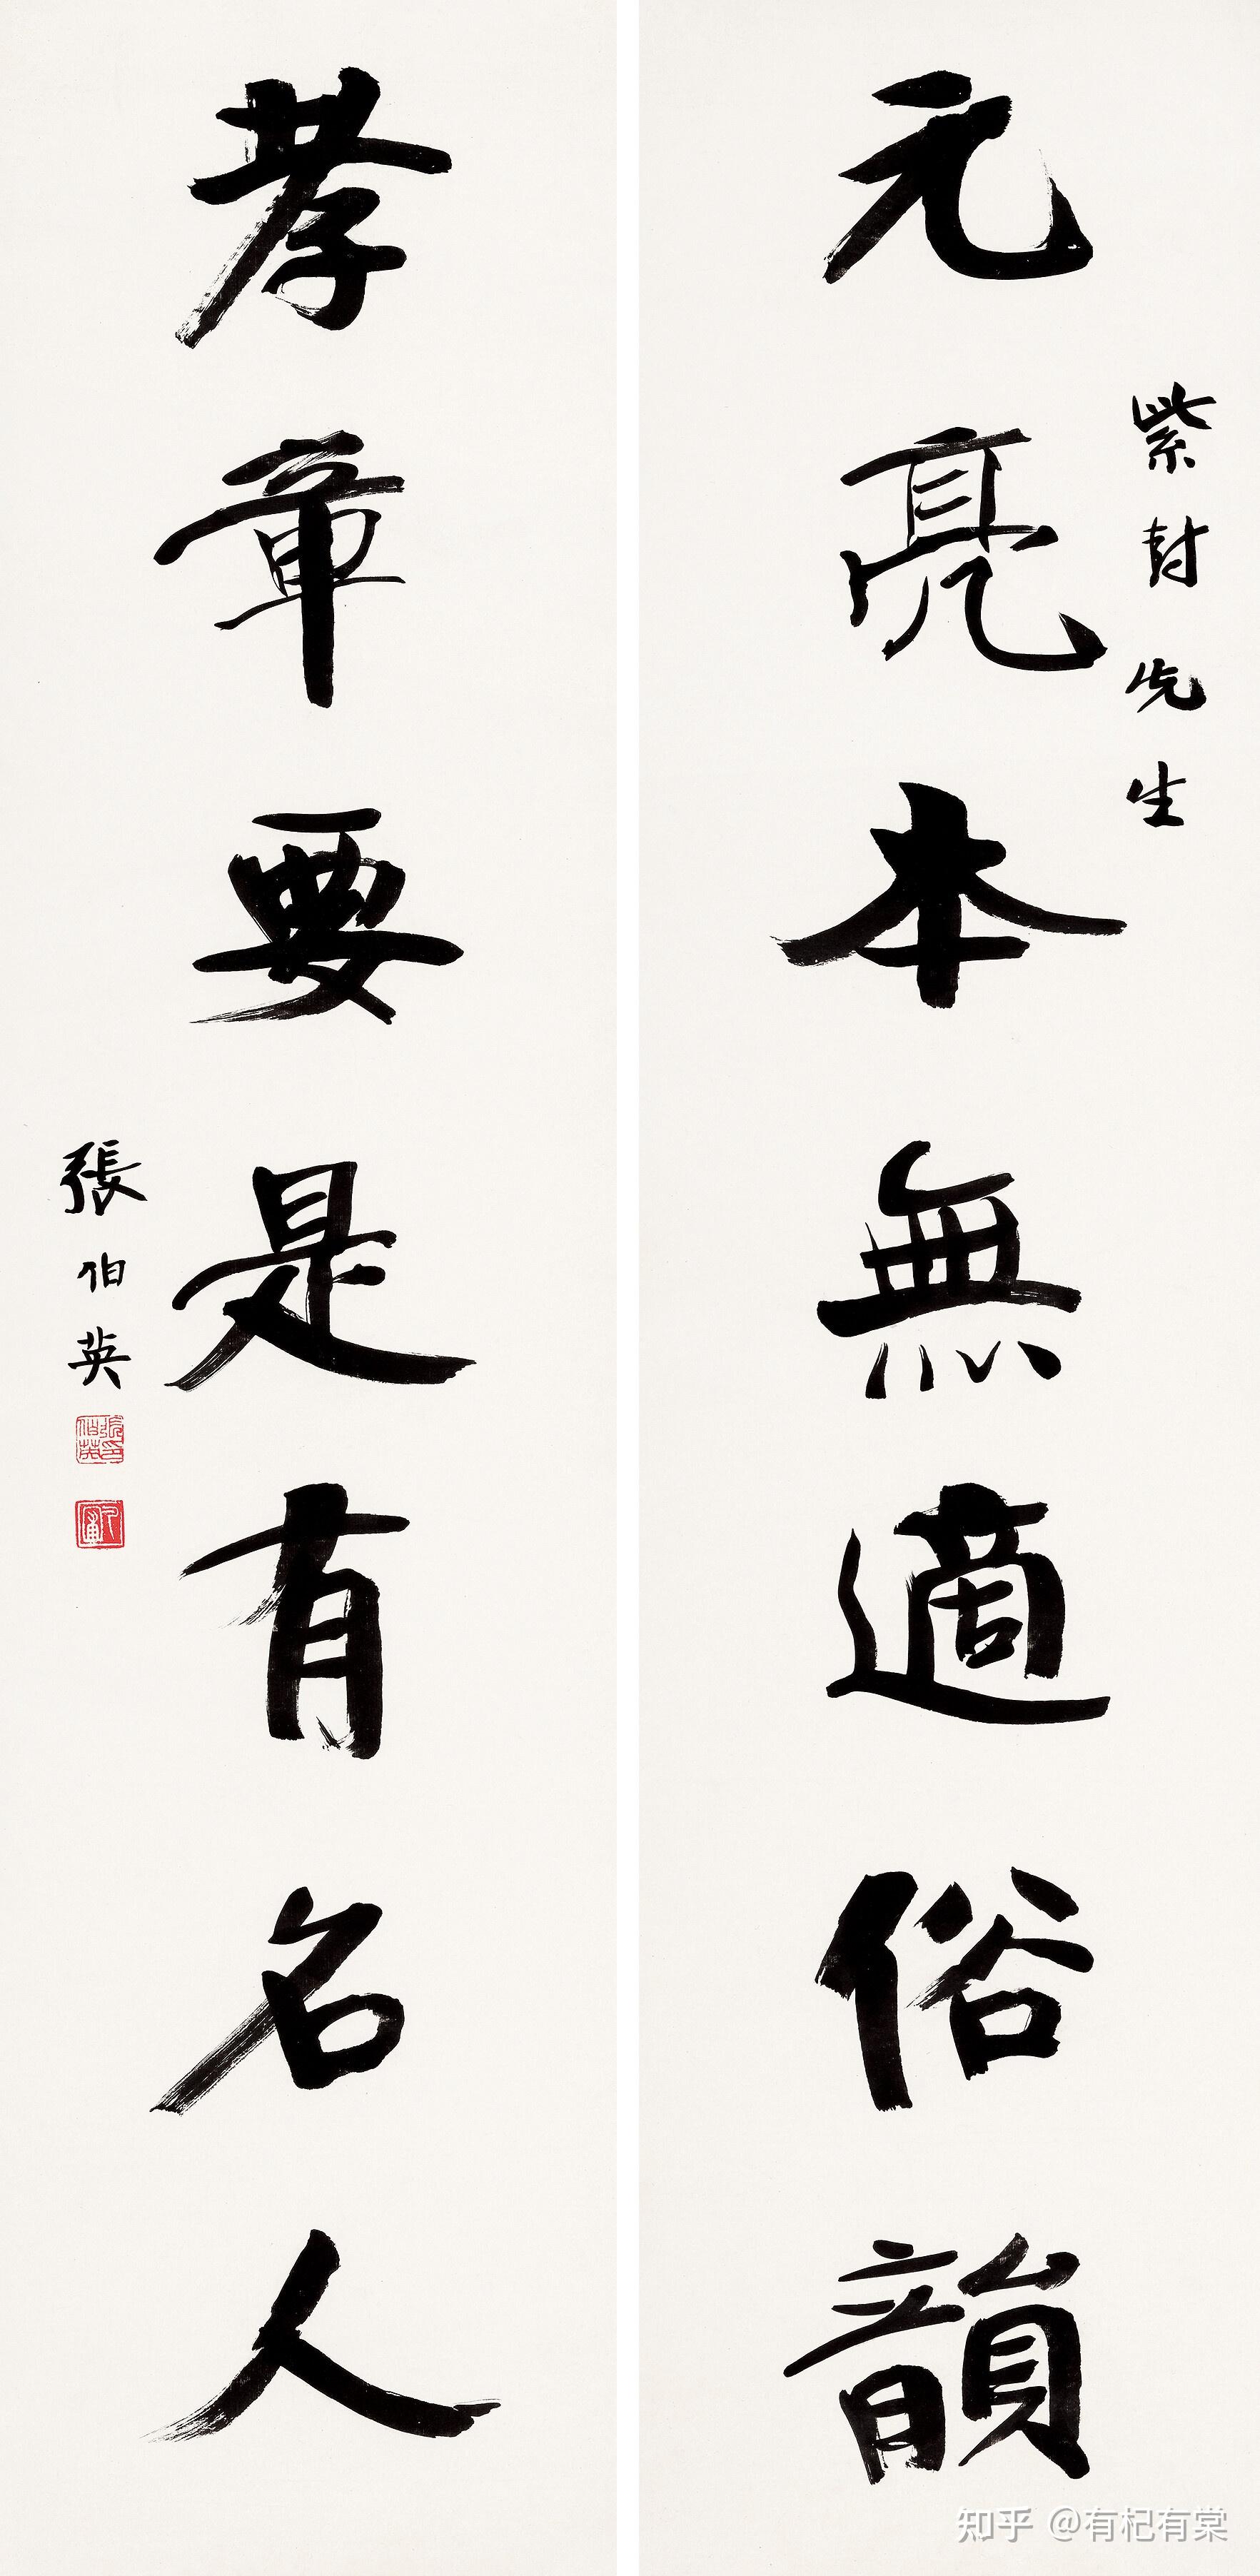 紫封先生
元亮本無適俗韻
孝章要是有名人
張伯英
知乎 @有杞有棠